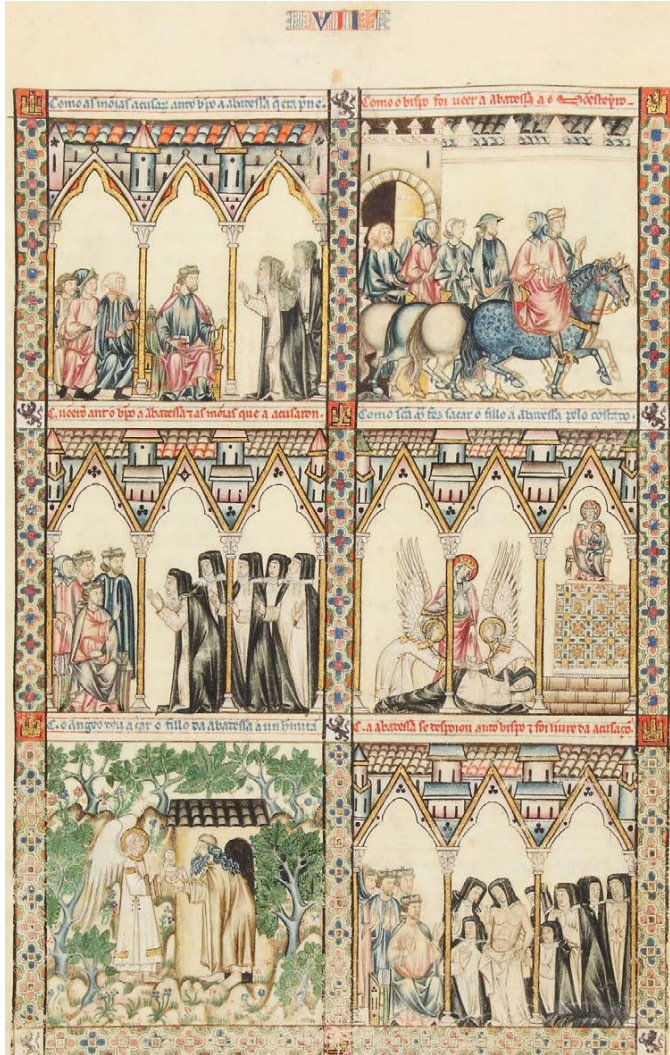 VII
Como as mōias acusarō anto bp̄o a abatessa q̄ era pn̄e.
Como o bispo foi ueer a abatessa a o Mōesteyro.
C. uēerō ant o bp̄o a abatessa ⁊ as mōias que a acusaron.
Como scā m̄ fez sacar o fillo a abatessa polo costado.
C. o angeo deu a c̄ar o fillo da abatessa a un h̄mita
C. a abatessa se despoiou anto bispo ⁊ foi liure da acusaçō.